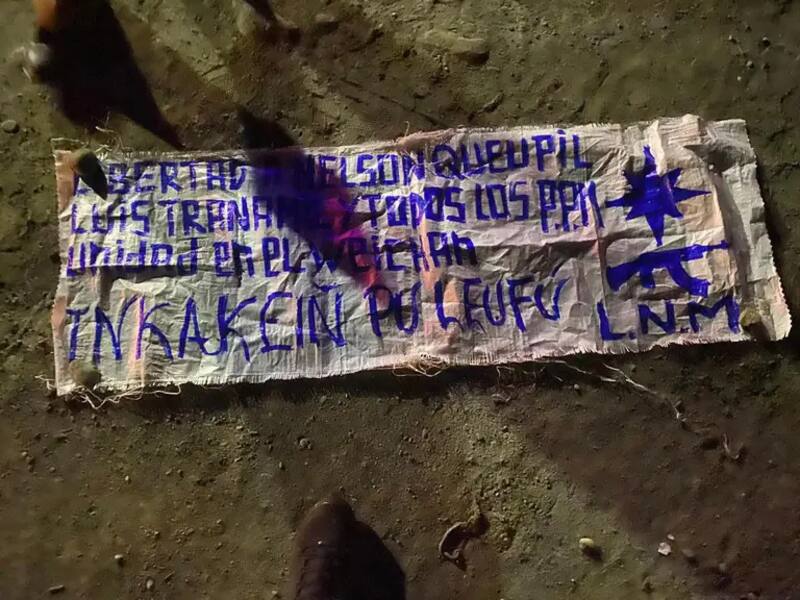 LIBERTAD A NELSON QUEUPIL
LUIS TRANAMIL Y TODOS LOS P.P.M
unidad en el weichan
INKAKEIÑ PU LEUFÚ
L.N.M